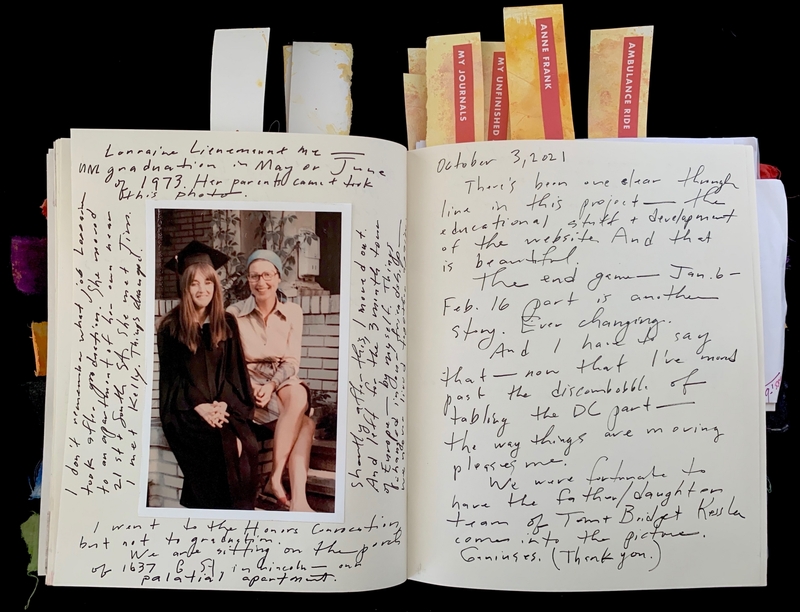 MY JOURNALS
MY UNFINISHED
ANNE FRANK
AMBULANCE RIDE
Lorraine Lienemann + me
UNL graduation in May or June
of 1973. Her parents came + took
this photo.
I don't remember what job Lorraine
took after graduation. She moved
to an apartment of her own near
21st + South St. She met Jim.
I met Kelly. Things changed.
Shortly after this, I moved out.
And left for the 3 month tour
of Europe — by myself. Things
I went to the Honors Convocation,
but not to graduation.
We are sitting on the porch
of 1637 G St. in Lincoln — our
palatial apartment.
October 3, 2021
There's been one clear through
line in this project — the
educational stuff + development
of the website. And that
is beautiful.
The end game — Jan. 6 –
Feb. 16 part is another
story. Ever changing.
And I have to say
that — now that I've moved
past the discombobble of
tabling the DC part —
the way things are moving
pleases me.
We were fortunate to
have the father/daughter
team of Tom + Bridget Kessler
come into the picture.
Geniuses. (Thank you.)